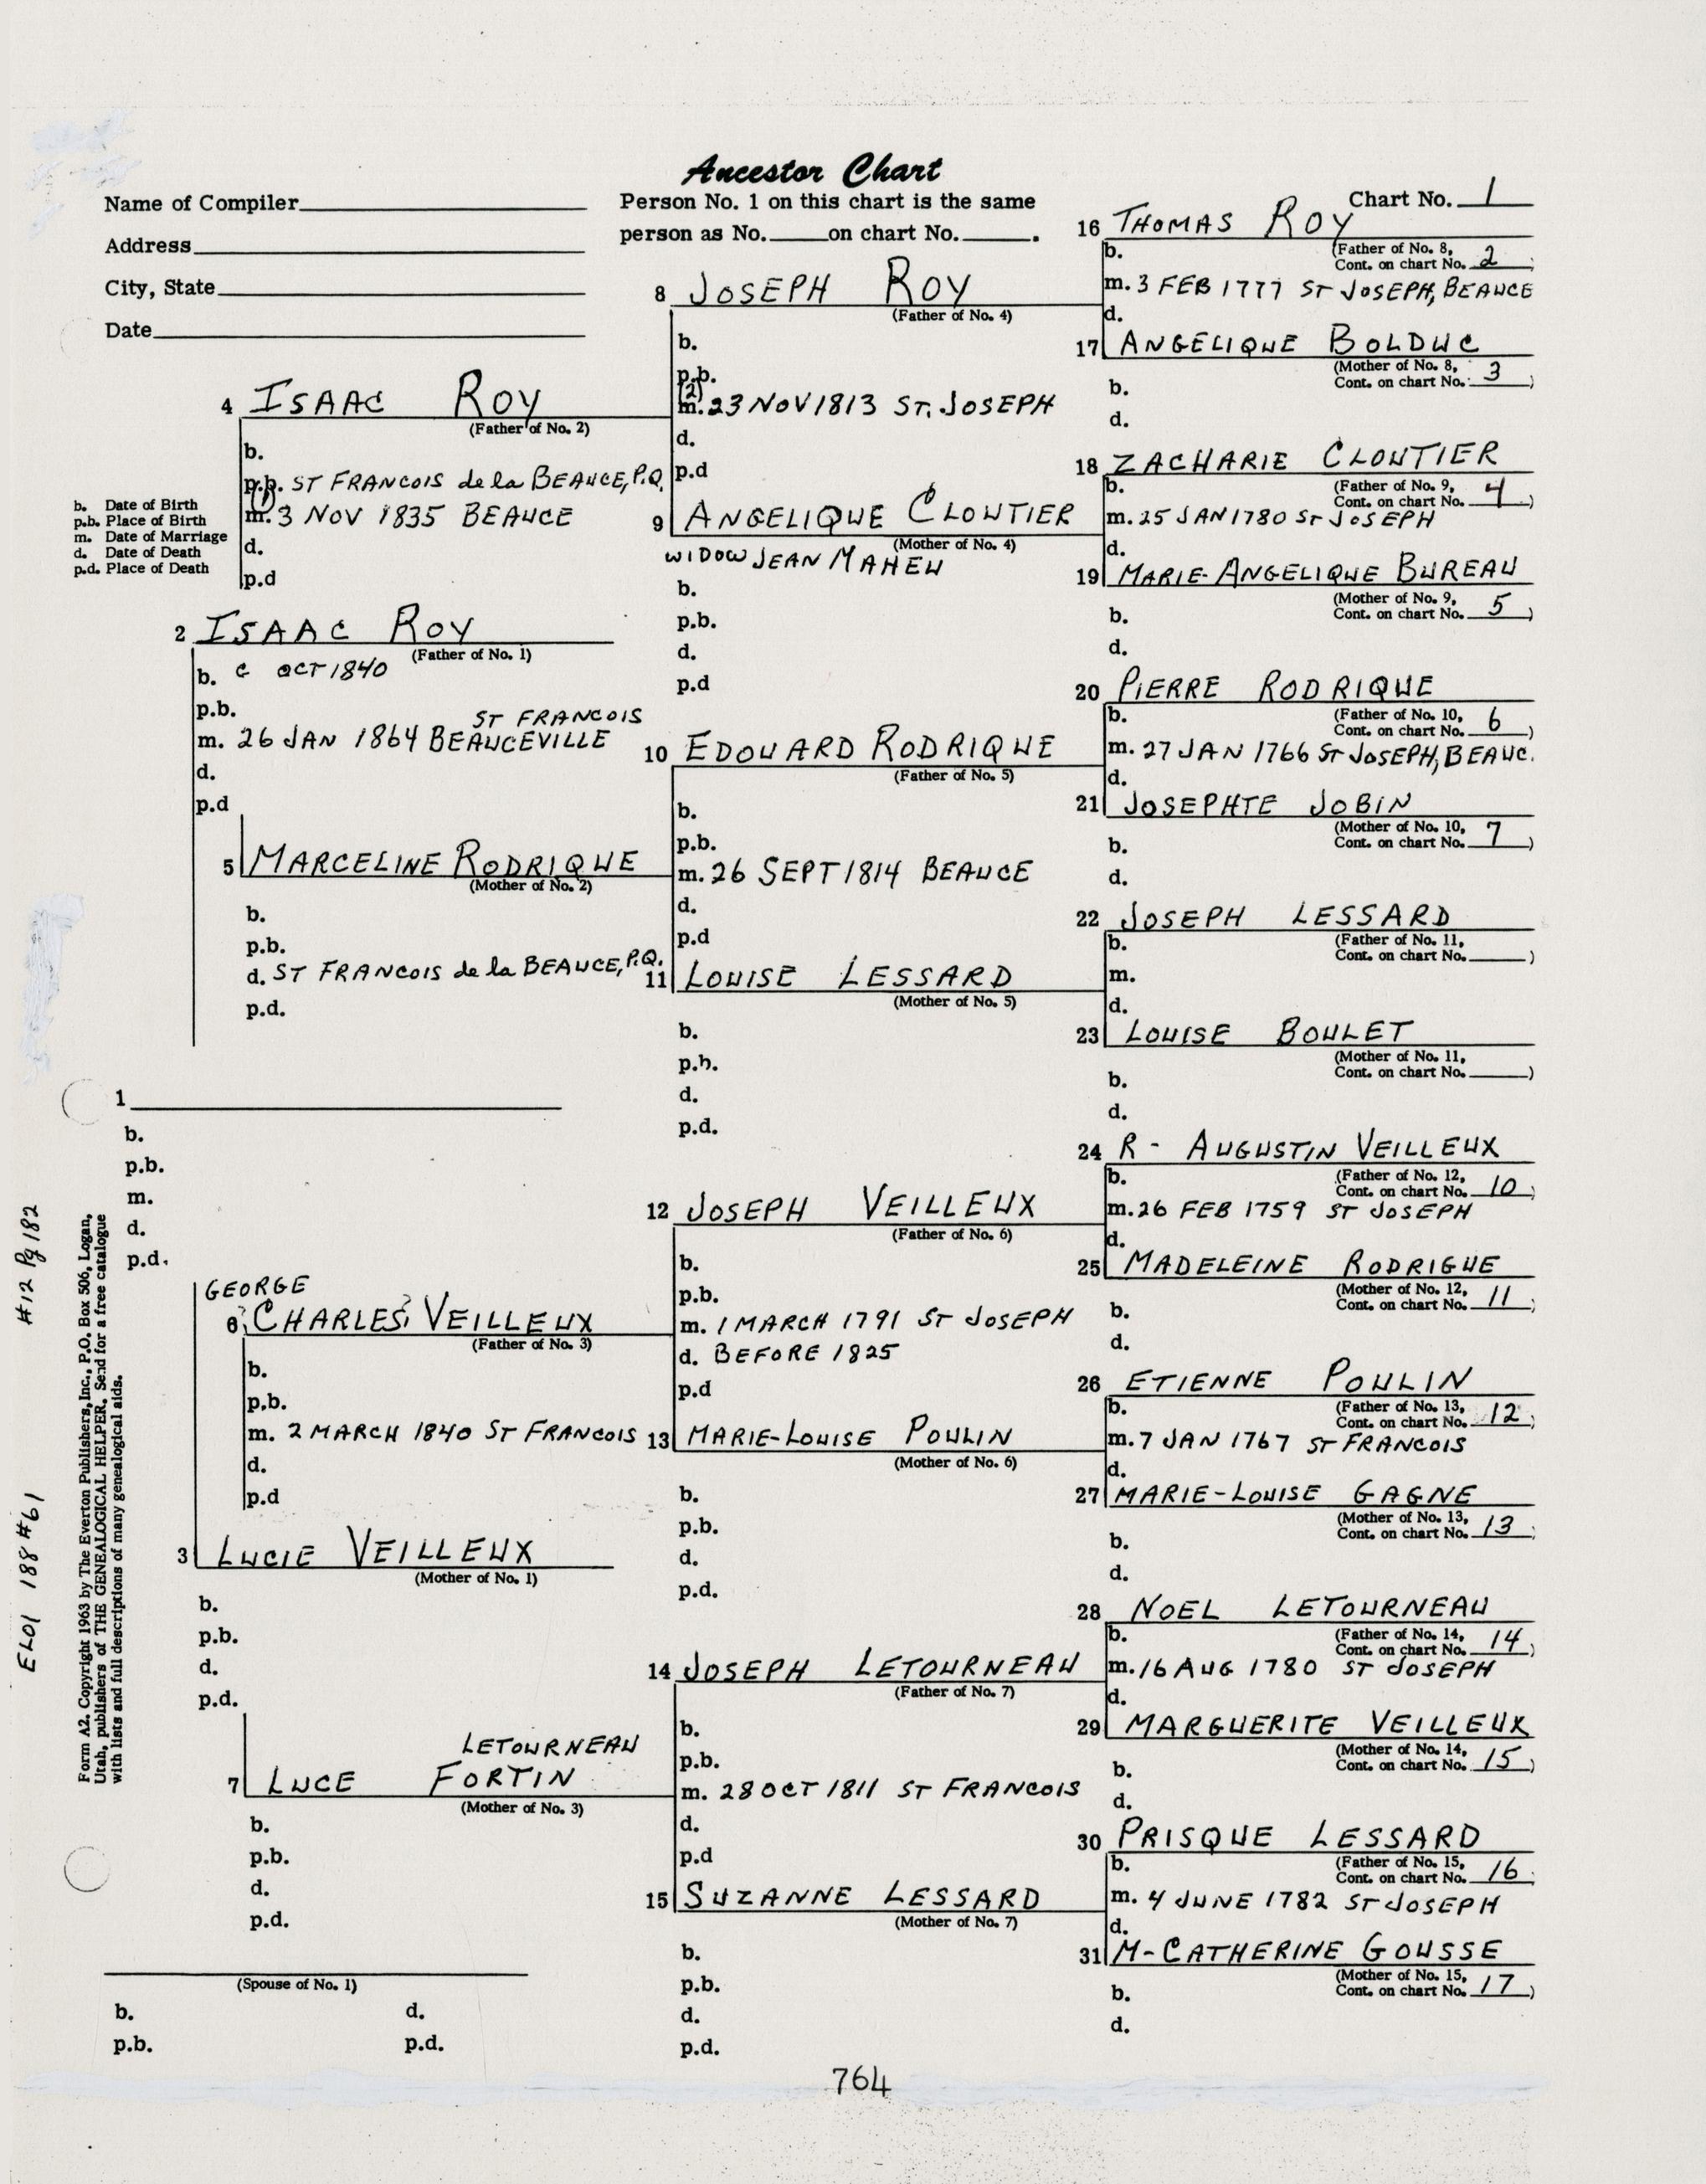 Ancestor Chart
Name of Compiler
Address
City, State
Date
Person No. 1 on this chart is the same
person as No. on chart No. .
Chart No. 1
b. Date of Birth
p.b. Place of Birth
m. Date of Marriage
d. Date of Death
p.d. Place of Death
1
b.
p.b.
m.
d.
p.d.
2 ISAAC ROY
(Father of No. 1)
b. C OCT 1840
p.b.
ST FRANCOIS
m. 26 JAN 1864 BEAUCEVILLE
d.
p.d
GEORGE
3 LUCIE VEILLEUX
(Mother of No. 1)
b.
p.b.
d.
p.d.
4 ISAAC ROY
(Father of No. 2)
b.
p.b. ST FRANCOIS de la BEAUCE, P.Q.
(1)
m. 3 NOV 1835 BEAUCE
d.
p.d
5 MARCELINE RODRIQUE
(Mother of No. 2)
b.
p.b.
d. ST FRANCOIS de la BEAUCE, P.Q.
p.d.
6 CHARLES VEILLEUX
(Father of No. 3)
b.
p.b.
m. 2 MARCH 1840 ST FRANCOIS
d.
p.d
LETOURNEAU
7 LUCE FORTIN
(Mother of No. 3)
b.
p.b.
d.
p.d.
8 JOSEPH ROY
(Father of No. 4)
b.
p.b.
(2)
m. 23 NOV 1813 ST. JOSEPH
d.
p.d
9 ANGELIQUE CLOUTIER
(Mother of No. 4)
WIDOW JEAN MAHEU
b.
p.b.
d.
p.d
10 EDOUARD RODRIQUE
(Father of No. 5)
b.
p.b.
m. 26 SEPT 1814 BEAUCE
d.
p.d
11 LOUISE LESSARD
(Mother of No. 5)
b.
p.b.
d.
p.d.
12 JOSEPH VEILLEUX
(Father of No. 6)
b.
p.b.
m. 1 MARCH 1791 ST JOSEPH
d. BEFORE 1825
p.d
13 MARIE-LOUISE POULIN
(Mother of No. 6)
b.
p.b.
d.
p.d.
14 JOSEPH LETOURNEAU
(Father of No. 7)
b.
p.b.
m. 28 OCT 1811 ST FRANCOIS
d.
p.d
15 SUZANNE LESSARD
(Mother of No. 7)
b.
p.b.
d.
p.d.
16 THOMAS ROY
b. (Father of No. 8,
Cont. on chart No. 2)
m. 3 FEB 1777 ST JOSEPH, BEAUCE
d.
17 ANGELIQUE BOLDUC
(Mother of No. 8,
b. Cont. on chart No. 3)
d.
18 ZACHARIE CLOUTIER
b. (Father of No. 9,
Cont. on chart No. 4)
m. 25 JAN 1780 ST JOSEPH
d.
19 MARIE-ANGELIQUE BUREAU
(Mother of No. 9,
b. Cont. on chart No. 5)
d.
20 PIERRE RODRIQUE
b. (Father of No. 10,
Cont. on chart No. 6)
m. 27 JAN 1766 ST JOSEPH, BEAUC.
d.
21 JOSEPHTE JOBIN
(Mother of No. 10,
b. Cont. on chart No. 7)
d.
22 JOSEPH LESSARD
b. (Father of No. 11,
Cont. on chart No. )
m.
d.
23 LOUISE BOULET
(Mother of No. 11,
b. Cont. on chart No. )
d.
24 R - AUGUSTIN VEILLEUX
b. (Father of No. 12,
Cont. on chart No. 10)
m. 26 FEB 1759 ST JOSEPH
d.
25 MADELEINE RODRIGUE
(Mother of No. 12,
b. Cont. on chart No. 11)
d.
26 ETIENNE POULIN
b. (Father of No. 13,
Cont. on chart No. 12)
m. 7 JAN 1767 ST FRANCOIS
d.
27 MARIE-LOUISE GAGNE
(Mother of No. 13,
b. Cont. on chart No. 13)
d.
28 NOEL LETOURNEAU
b. (Father of No. 14,
Cont. on chart No. 14)
m. 16 AUG 1780 ST JOSEPH
d.
29 MARGUERITE VEILLEUX
(Mother of No. 14,
b. Cont. on chart No. 15)
d.
30 PRISQUE LESSARD
b. (Father of No. 15,
Cont. on chart No. 16)
m. 4 JUNE 1782 ST JOSEPH
d.
31 M-CATHERINE GOUSSE
(Mother of No. 15,
b. Cont. on chart No. 17)
d.
(Spouse of No. 1)
b. d.
p.b. p.d.
764
#12 Pg 182
ELOI 188 #61
Form A2. Copyright 1963 by The Everton Publishers, Inc., P.O. Box 506, Logan,
Utah, publishers of THE GENEALOGICAL HELPER. Send for a free catalogue
with lists and full descriptions of many genealogical aids.